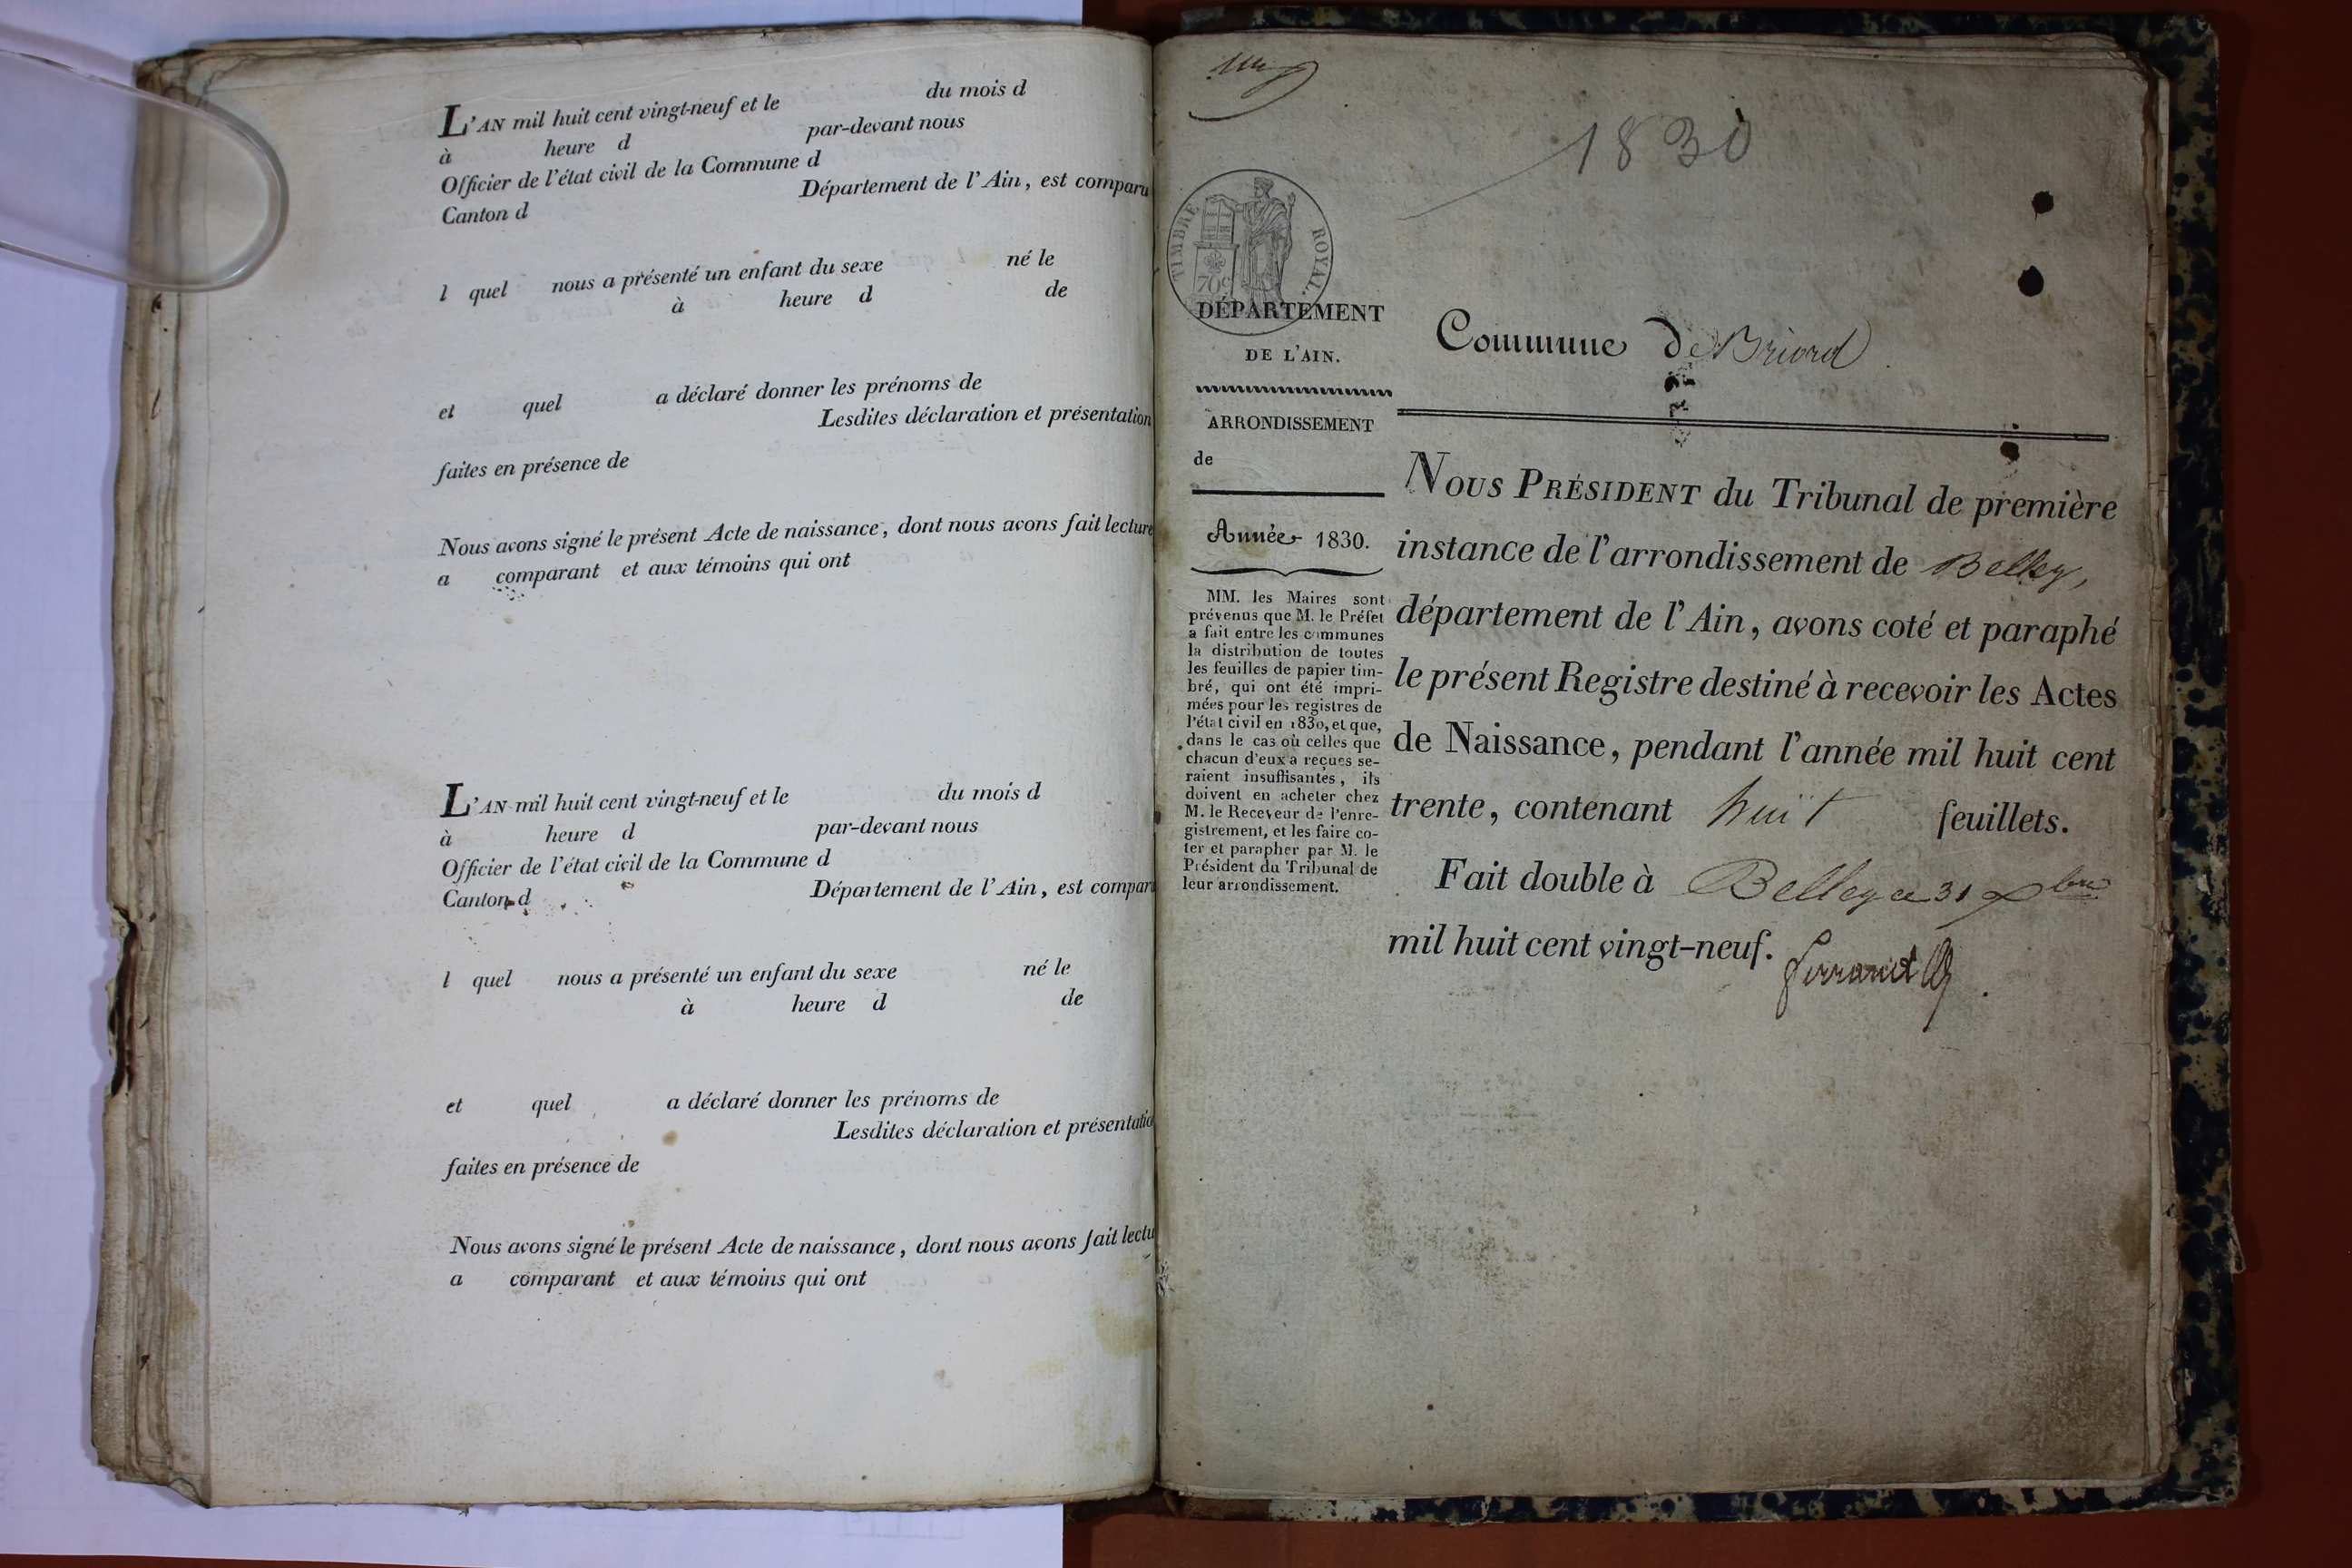 L'AN mil huit cent vingt-neuf et le du mois d
à heure d par-devant nous
Officier de l'état civil de la Commune d
Canton d Département de l'Ain, est comparu
l quel nous a présenté un enfant du sexe né le
à heure d de
et quel a déclaré donner les prénoms de
Lesdites déclaration et présentation
faites en présence de
Nous avons signé le présent Acte de naissance, dont nous avons fait lecture
a comparant et aux témoins qui ont
L'AN mil huit cent vingt-neuf et le du mois d
à heure d par-devant nous
Officier de l'état civil de la Commune d
Canton d Département de l'Ain, est compar
l quel nous a présenté un enfant du sexe né le
à heure d de
et quel a déclaré donner les prénoms de
Lesdites déclaration et présentatio
faites en présence de
Nous avons signé le présent Acte de naissance, dont nous avons fait lectu
a comparant et aux témoins qui ont
1830
TIMBRE ROYAL.
70c
DÉPARTEMENT
DE L'AIN.
ARRONDISSEMENT
de
Année 1830.
MM. les Maires sont
prévenus que M. le Préfet
a fait entre les communes
la distribution de toutes
les feuilles de papier tim-
bré, qui ont été impri-
mées pour les registres de
l'état civil en 1830, et que,
dans le cas où celles que
chacun d'eux a reçues se-
raient insuffisantes, ils
doivent en acheter chez
M. le Receveur de l'enre-
gistrement, et les faire co-
ter et parapher par M. le
Président du Tribunal de
leur arrondissement.
Commune de Briord
NOUS PRÉSIDENT du Tribunal de première
instance de l'arrondissement de Belley,
département de l'Ain, avons coté et paraphé
le présent Registre destiné à recevoir les Actes
de Naissance, pendant l'année mil huit cent
trente, contenant huit feuillets.
Fait double à Belley ce 31 Xbre
mil huit cent vingt-neuf.